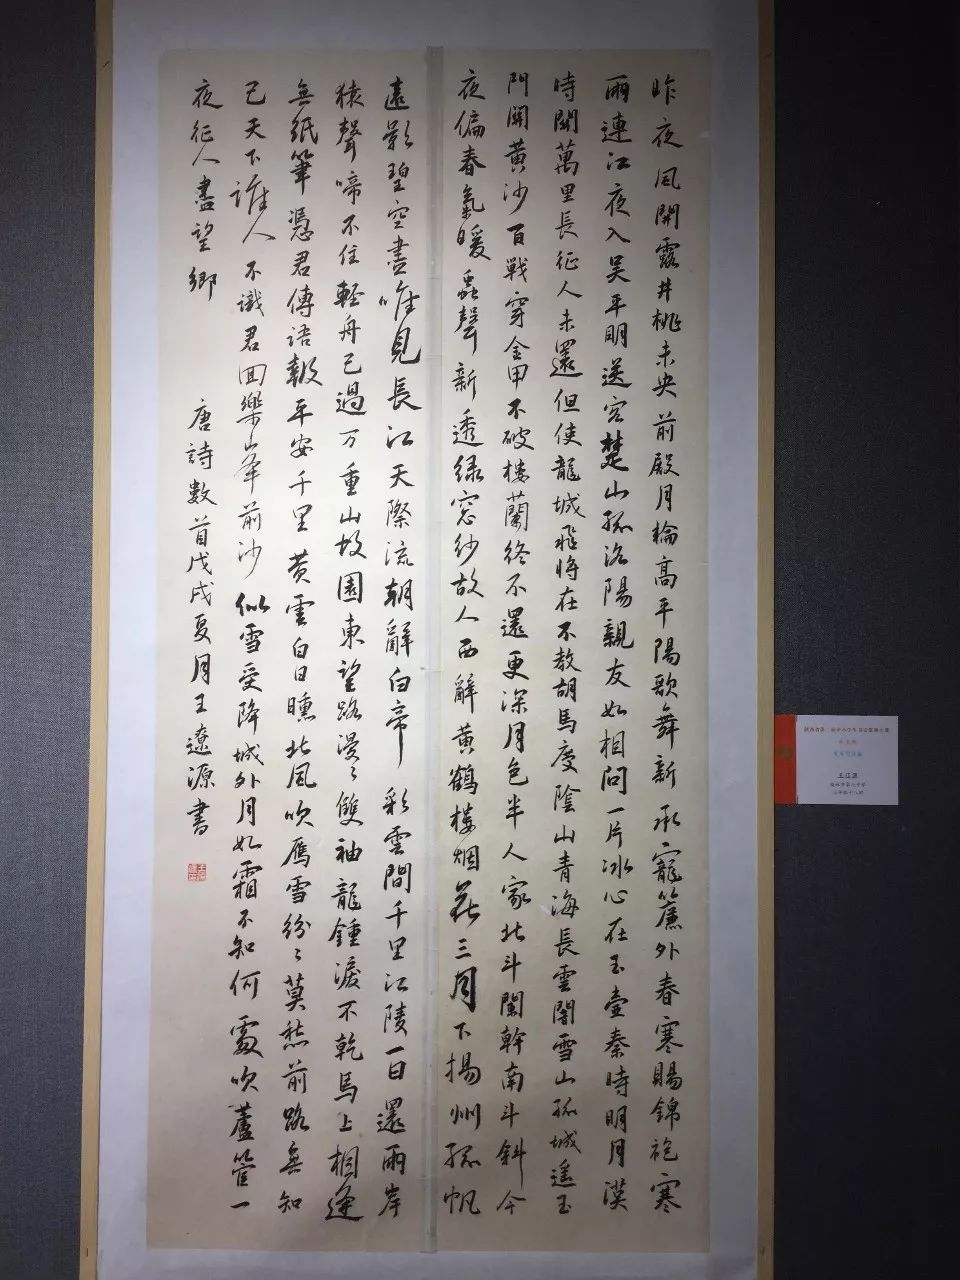 昨夜風開露井桃未央前殿月輪高平陽歌舞新承寵簾外春寒賜錦袍寒
雨連江夜入吳平明送客楚山孤洛陽親友如相問一片冰心在玉壺秦時明月漢
時關萬里長征人未還但使龍城飛將在不教胡馬度陰山青海長雲闇雪山孤城遙玉
門關黃沙百戰穿金甲不破樓蘭終不還更深月色半人家北斗闌幹南斗斜今
夜偏春氣暖蟲聲新透綠窓紗故人西辭黃鶴樓烟花三月下揚州孤帆
遠影碧空盡唯見長江天際流朝辭白帝彩雲間千里江陵一日還兩岸
猿聲啼不住輕舟已過万重山故園東望路漫〻雙袖龍鍾淚不乾馬上相逢
無紙筆憑君傳語報平安千里黃雲白日曛北風吹雁雪紛〻莫愁前路無知
己天下誰人不識君回樂峯前沙似雪受降城外月如霜不知何處吹蘆管一
夜征人盡望鄉 唐詩數首戊戌夏月王遼源書
王辽源